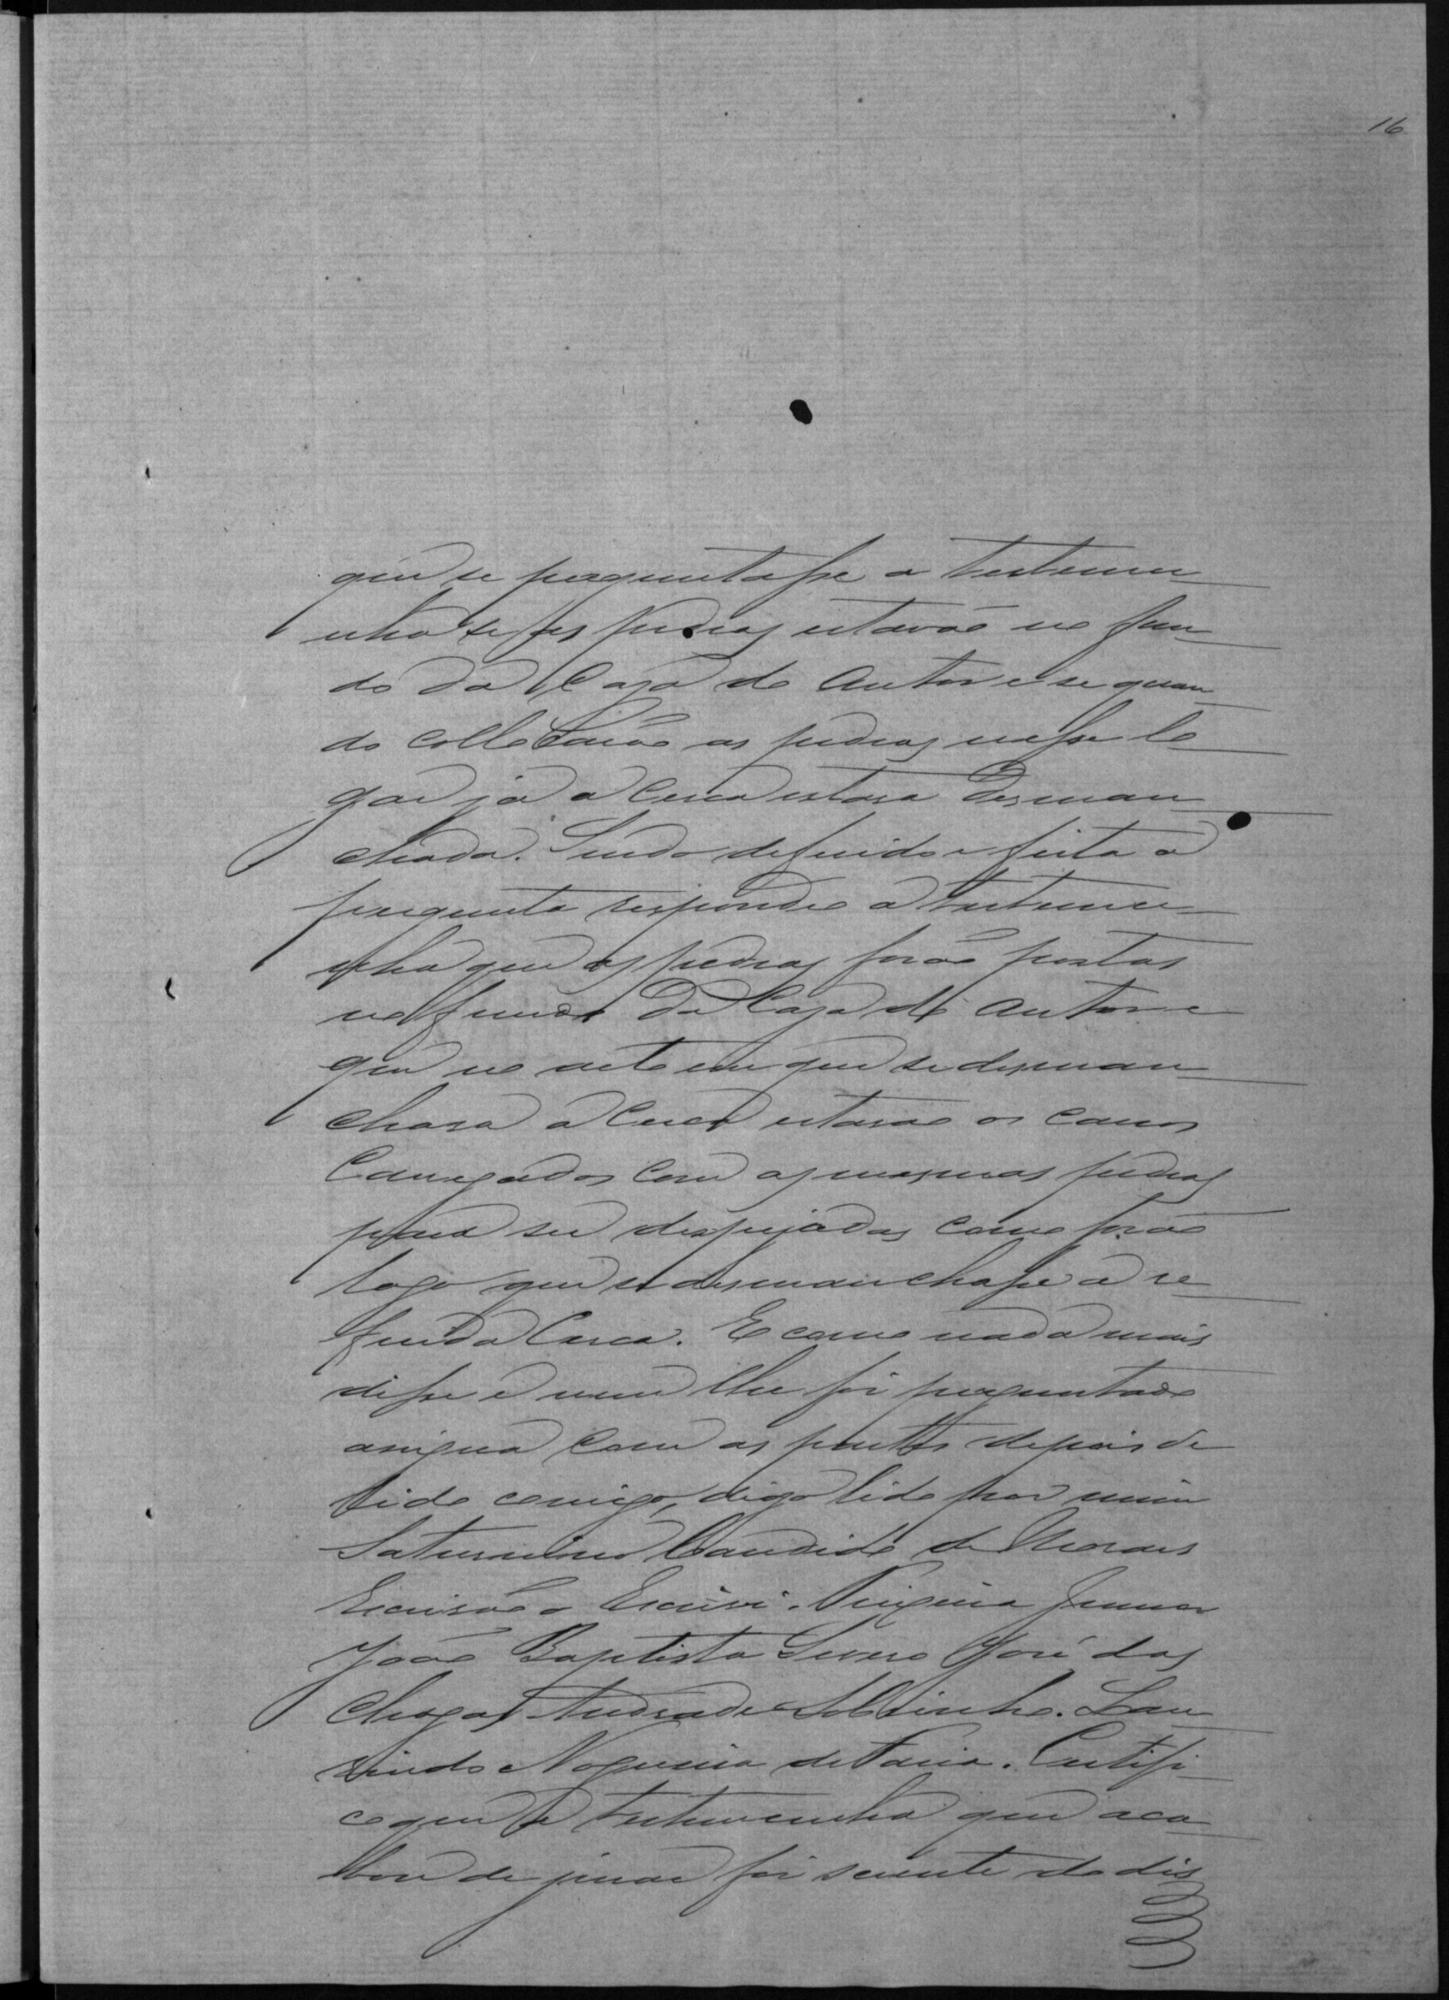 16
que se perguntasse a testemu
nha se as pedras estavão no fun
do da Casa do Autor e se quan
do collocarão as pedras nesse lo
gar já a Cerca estava desman
chada. Sendo deferido e feita a
pergunta respondeo a testemu
nha que as pedras forão postas
no fundo da Casa do Autor e
que no acto em que se desman
chava a Cerca estavão os carros
Carregados com as mesmas pedras
para ser despejadas como forão
logo que se desmanchasse a re
ferida Cerca. E como nada mais
disse e nem lhe foi perguntado
assigna com as partes depois de
lido comigo, digo lido por mim
Saturnino Candido de Moraes
Escrivão o Escrivi. Junior
João Baptista Severo José das
Chagas Andrade Sobrinho. Lau
rindo Nogueira de Faria. Certifi
co que a testemunha que aca
bou de jurar foi sciente do dis